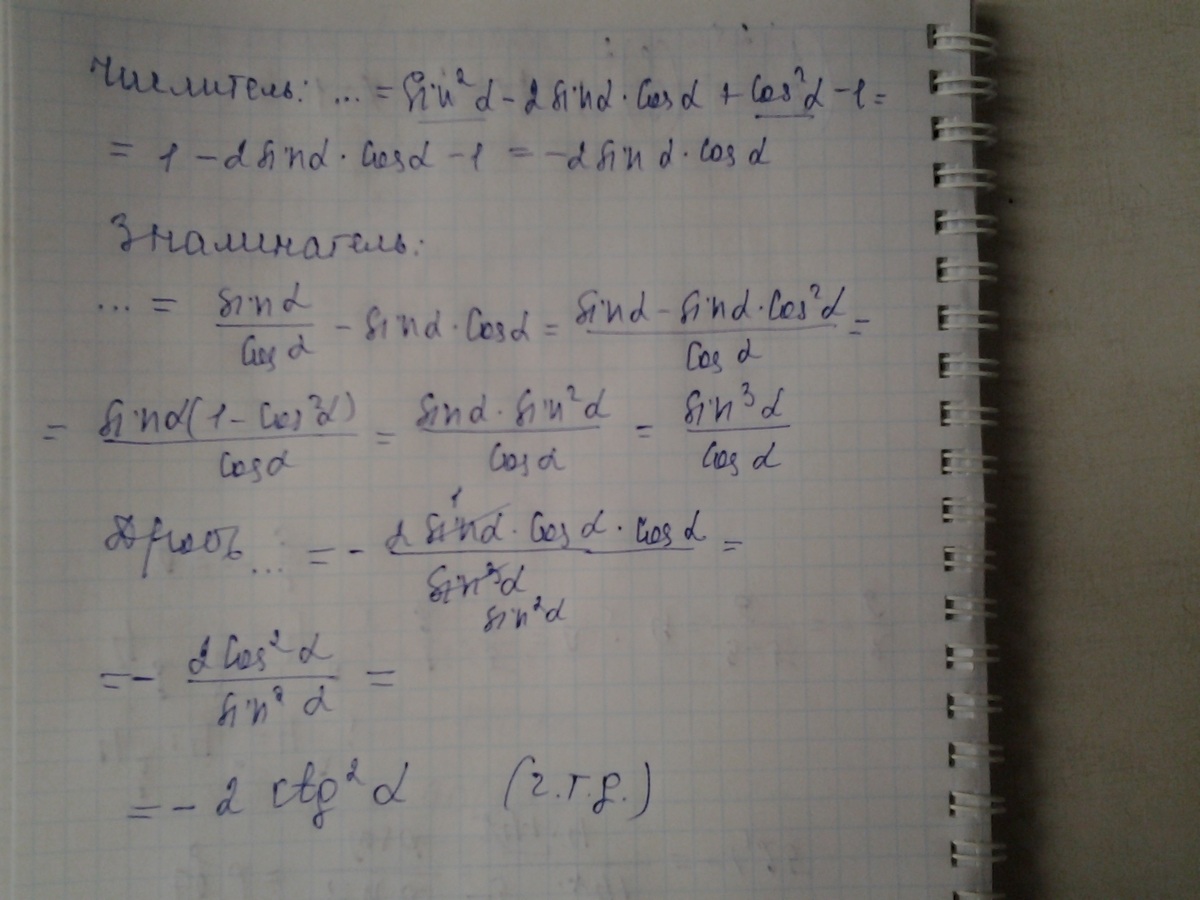 Числитель: ... = sin²α - 2 sinα · cosα + cos²α - 1 =
= 1 - 2 sinα · cosα - 1 = -2 sin α · cos α
Знаминатель:
... = sin α / cos α - sin α · cos α = (sin α - sin α · cos²α) / cos α =
= sin α (1 - cos²α) / cos α = sin α · sin²α / cos α = sin³α / cos α
Дробь ... = - 2 sin α · cos α · cos α / sin³α =
1
sin²α
= - 2 cos² α / sin² α =
= - 2 ctg² α (ч.т.д.)